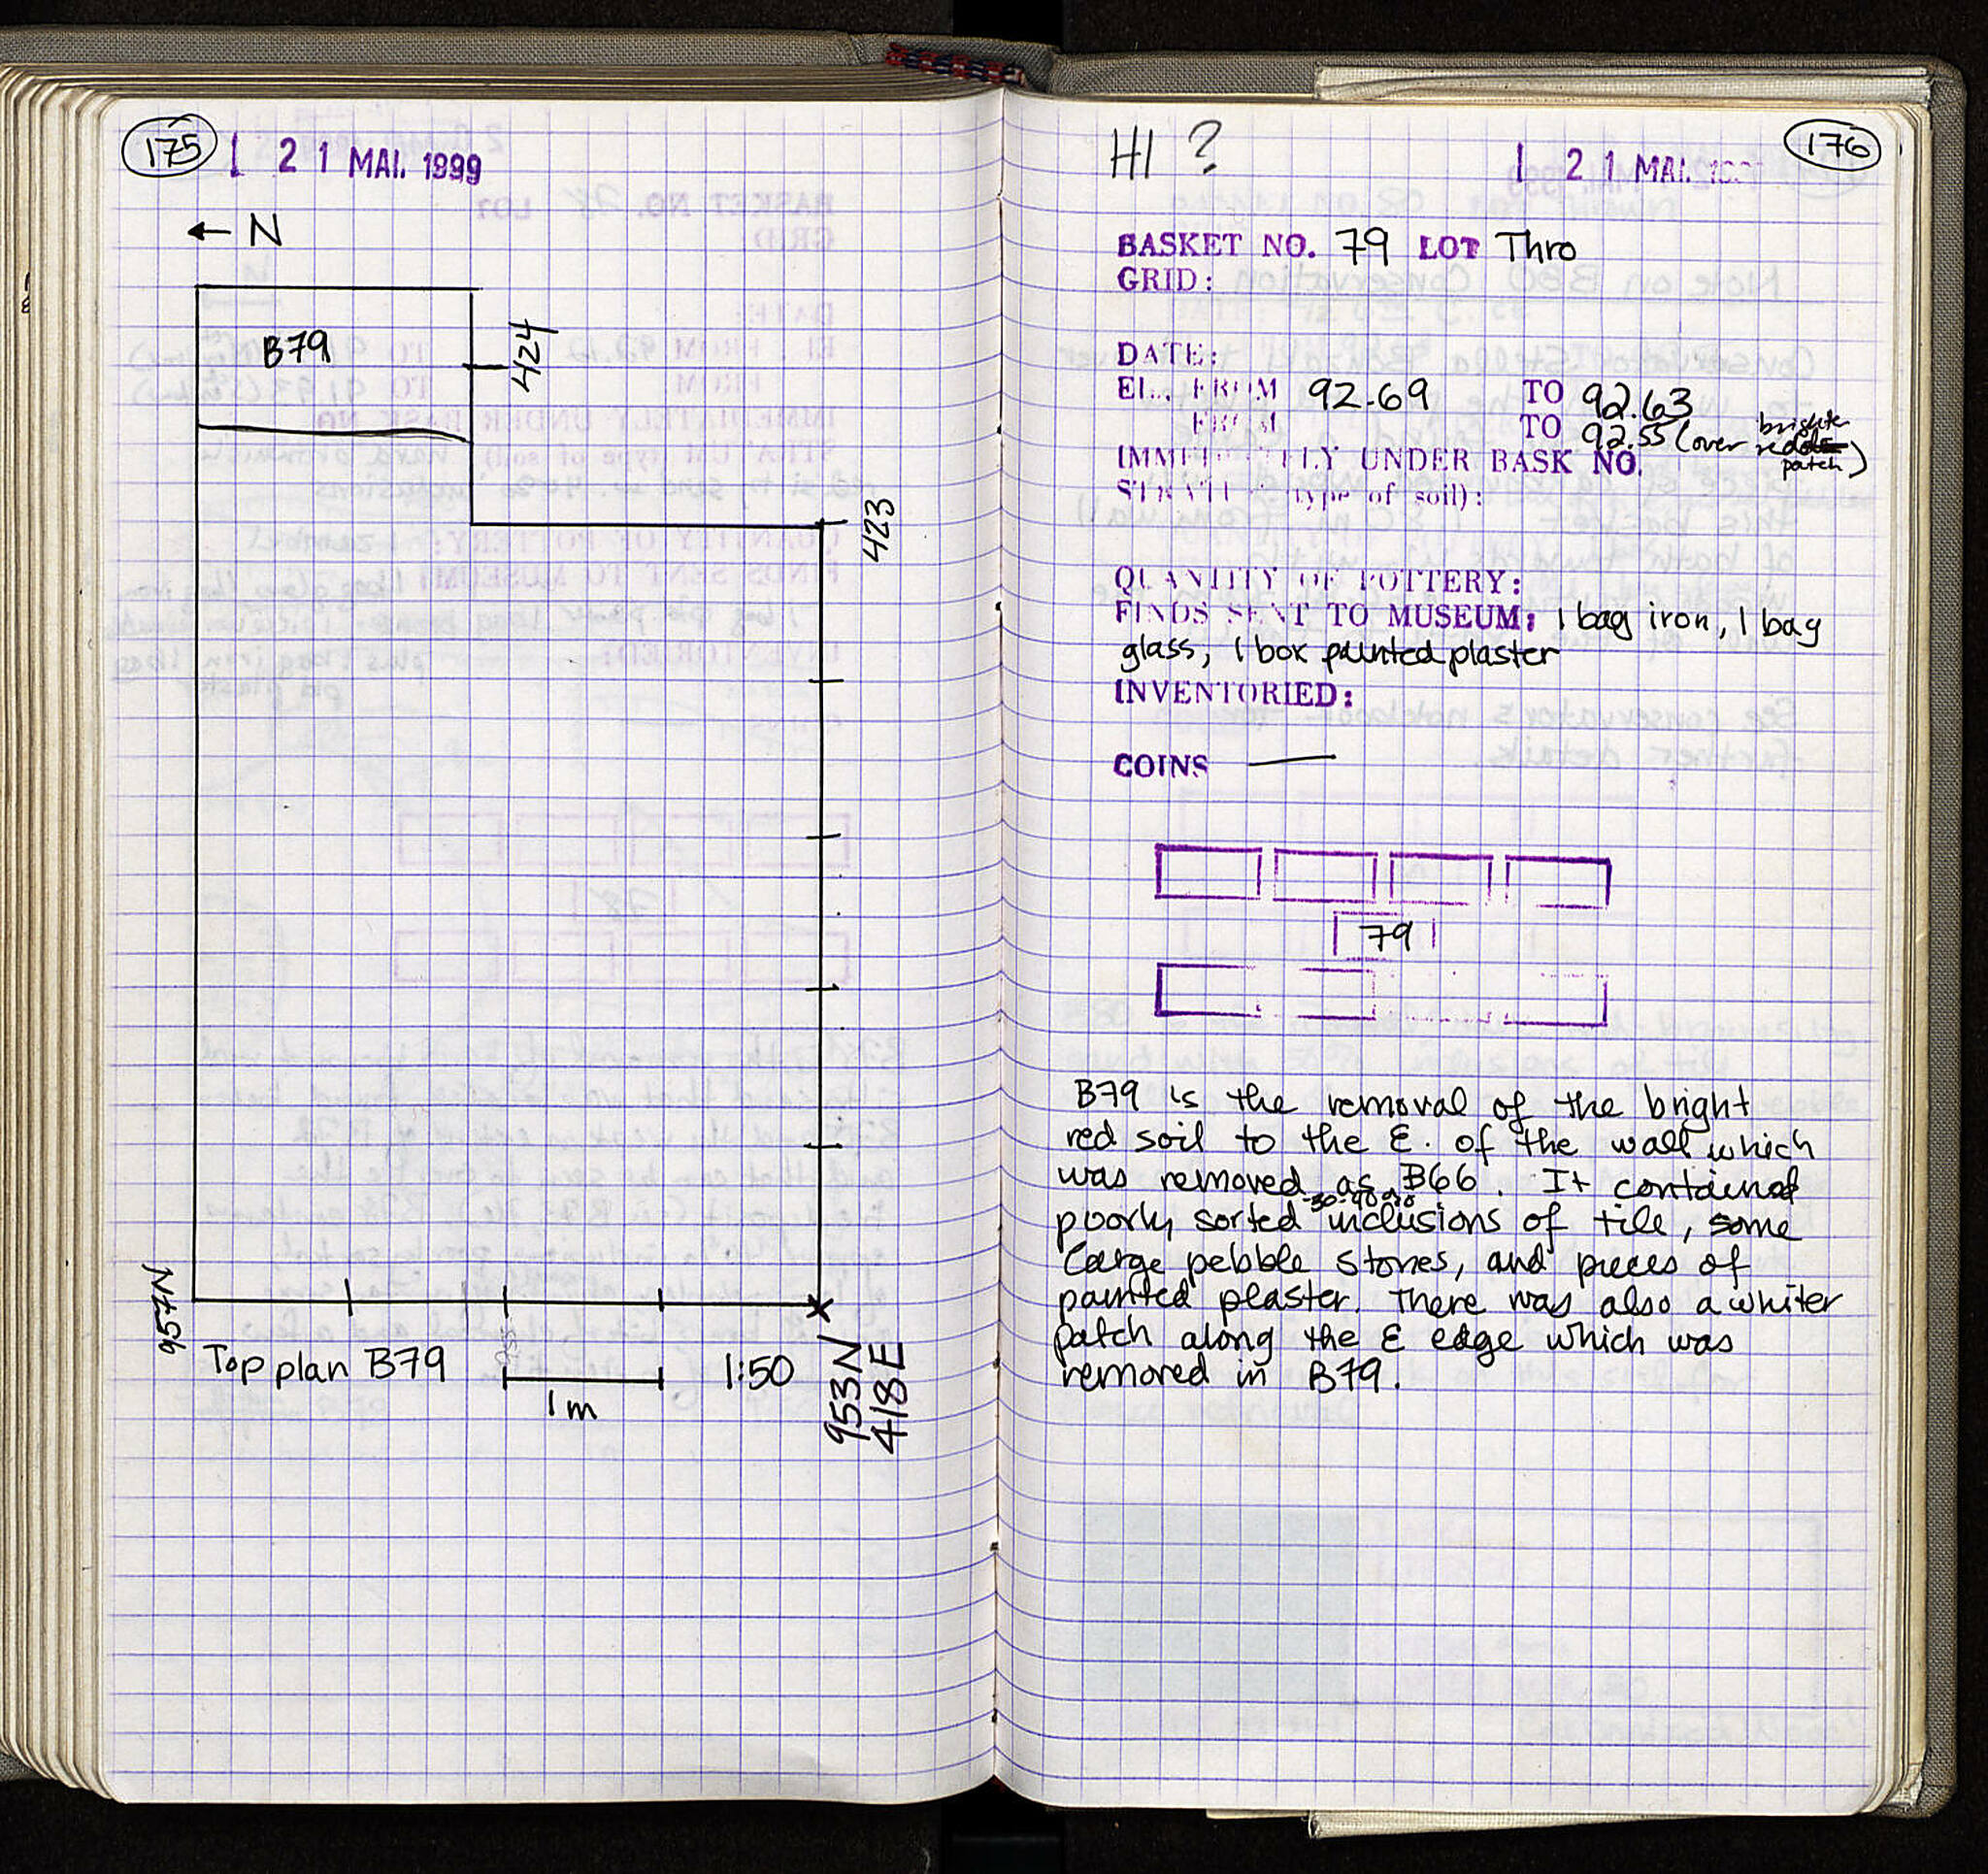 175
21 MAI. 1999
← N
B79
424
423
957N
Top plan B79
1m
1:50
953N
418E
HI ?
21 MAI.
176
BASKET NO. 79 LOT Thro
GRID:
DATE:
EL. FROM 92.69 TO 92.63
FROM TO 92.55 (over brighter red patch)
IMMEDIATELY UNDER BASK NO.
STRATUM (type of soil):
QUANTITY OF POTTERY:
FINDS SENT TO MUSEUM: 1 bag iron, 1 bag
glass, 1 box painted plaster
INVENTORIED:
COINS —
79
B79 is the removal of the bright
red soil to the E. of the wall which
was removed as B66. It contained
poorly sorted inclusions of tile, some
large pebble stones, and pieces of
painted plaster. There was also a whiter
patch along the E edge which was
removed in B79.